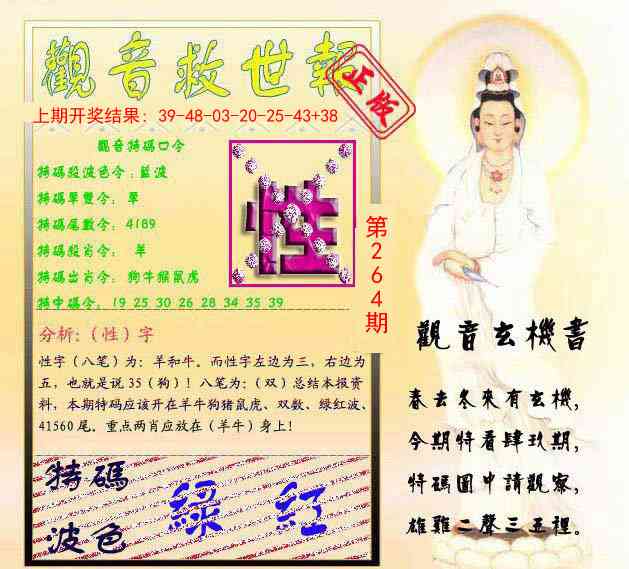 觀音救世報
正版
上期开奖结果：39-48-03-20-25-43+38
觀音特碼口令
特碼殺波色令：藍波
特碼單雙令： 單
特碼尾數令： 4189
特碼殺肖令： 羊
特碼出肖令： 狗牛猴鼠虎
特中碼令： 19 25 30 26 28 34 35 39
性
第264期
分析:（性）字
性字（八笔）为：羊和牛。而性字左边为三，右边为
五，也就是说 35（狗）！八笔为：（双）总结本报资
料，本期特码应该开在羊牛狗猪鼠虎、双数、绿红波、
41560 尾。重点两肖应放在（羊牛）身上！
特碼
波色
綠 紅
觀音玄機書
春去冬來有玄機，
今期特看肆玖期，
特碼圖中請觀察，
雄雞二聲三五裡。